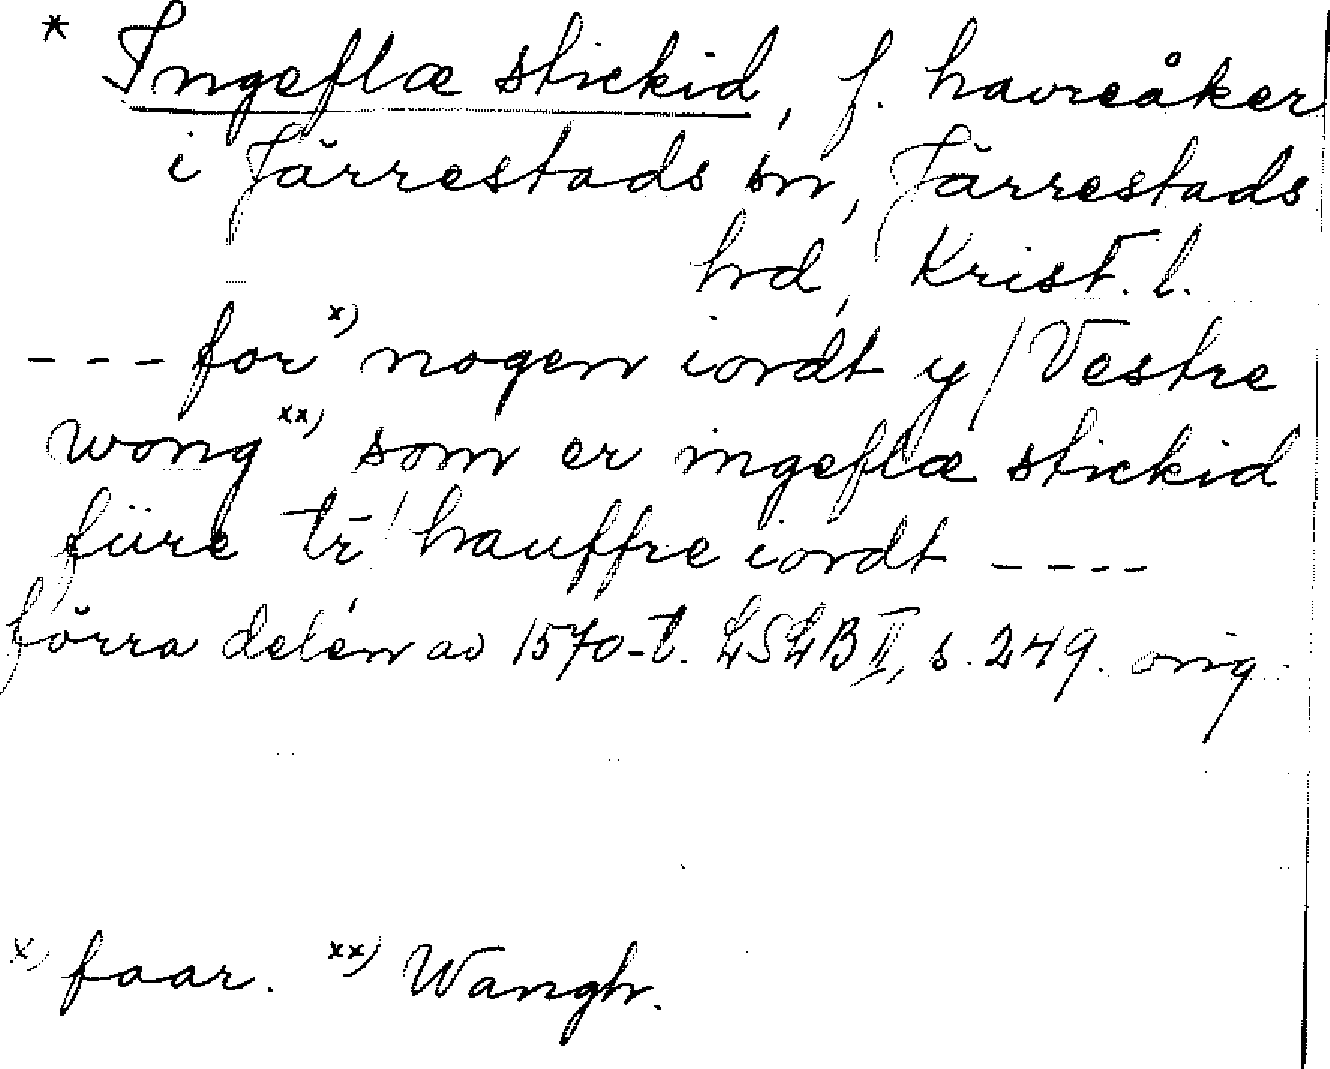 * Ingeflæ stickid, f. havreåker
i Järrestads sn, Järrestads
hd, Krist. l.
--- for x) nogen iordt y/ Vestre
wong xx) som er ingeflæ stickid
füre tr̄/ hauffre iordt ----
förra delen av 1570-t. LSLB II, s. 249. orig.
x) faar. xx) Wangh.